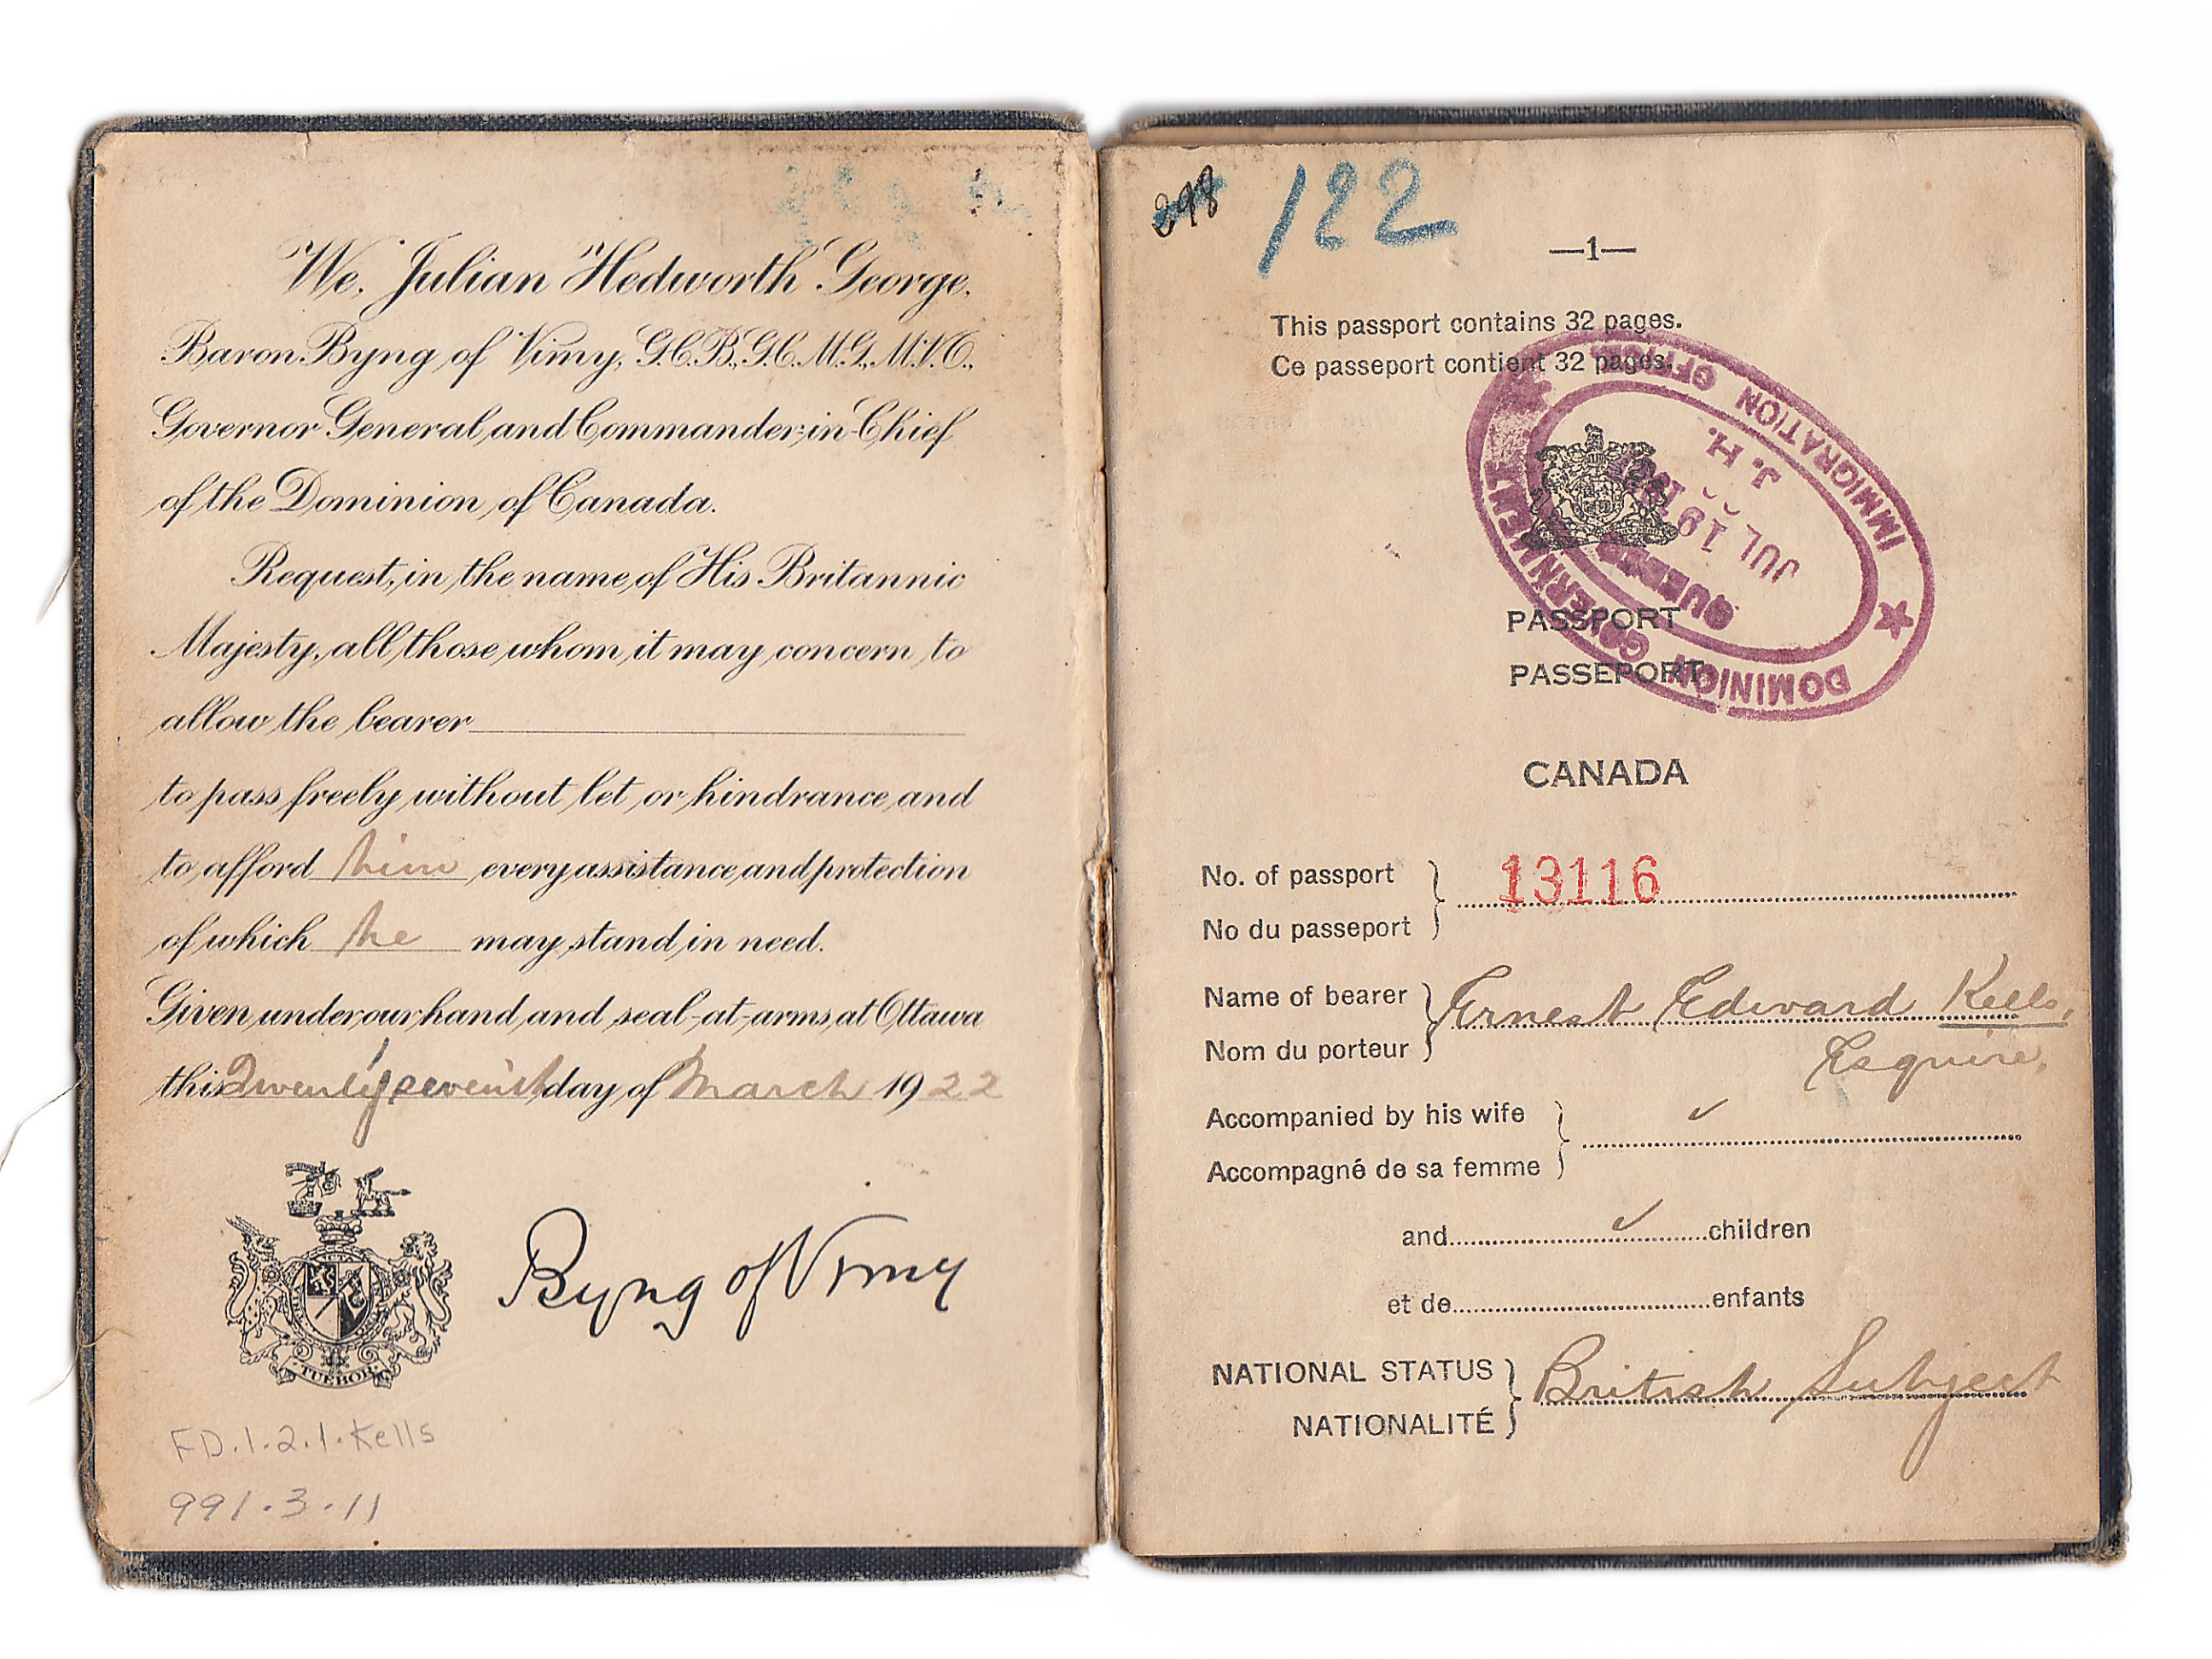 We, Julian Hedworth George,
Baron Byng of Vimy, G.C.B., G.C.M.G., M.V.O.,
Governor General and Commander-in-Chief
of the Dominion of Canada.
Request, in the name of His Britannic
Majesty, all those whom it may concern to
allow the bearer
to pass freely without let or hindrance and
to afford him every assistance and protection
of which he may stand in need.
Given under our hand and seal-at-arms at Ottawa
this Twenty seventh day of March 1922
TUEBOR
Byng of Vimy
FD.1.2.1.Kells
991.3.11
298 122
—1—
This passport contains 32 pages.
Ce passeport contient 32 pages.
DOMINION GOVERNMENT
IMMIGRATION OFFICE
J. H.
JUL 19
QUEBEC
PASSPORT
PASSEPORT
CANADA
No. of passport
No du passeport
13116
Name of bearer
Nom du porteur
Ernest Edward Kells,
Esquire.
Accompanied by his wife
Accompagné de sa femme
and children
et de enfants
NATIONAL STATUS
NATIONALITÉ
British Subject